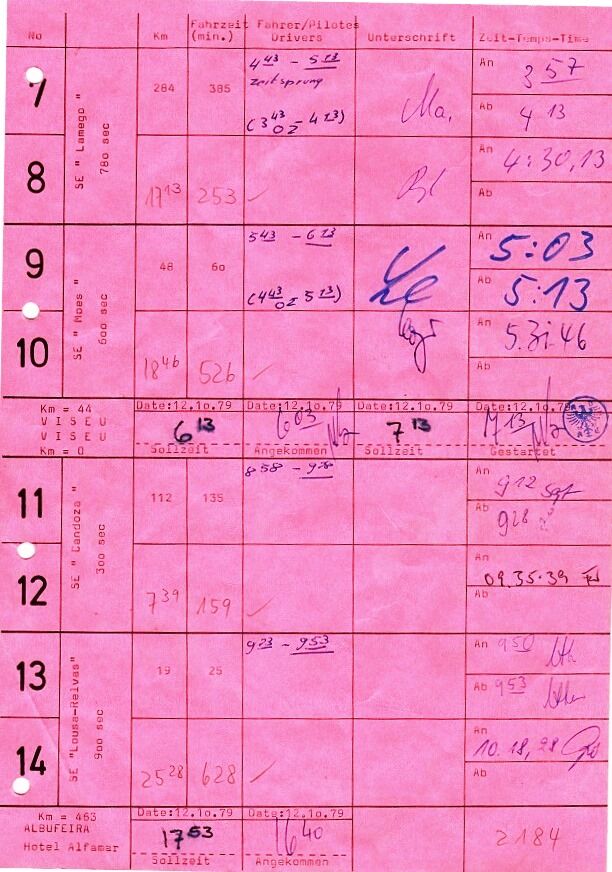 No Km Fahrzeit (min.) Fahrer/Pilotes Drivers Unterschrift Zeit-Temps-Time
7
SE "Lamego"
780 sec
284 385
4 43 - 5 13
Zeitsprung
(3 43 oz - 4 13)
Ma.
An 3 57
Ab 4 13
8
17 13 253
An 4:30,13
Ab
9
SE "Moes"
600 sec
48 60
5 43 - 6 13
(4 43 oz 5 13)
An 5:03
Ab 5:13
10
18 46 526
An 5.31.46
Ab
Km = 44
VISEU
VISEU
Km = 0
Date:12.10.79 Date:12.10.79 Date:12.10.79 Date:12.10.79
6 13 6 03 7 13 17 13
Sollzeit Angekommen Sollzeit Gestartet
11
SE "Candoza"
300 sec
112 135
8 58 - 9 28
An 9 12
Ab 9 28
12
7 39 159
An 09.35.39
Ab
13
SE "Lousa-Relvas"
900 sec
19 25
9 23 - 9 53
An 9 50
Ab 9 53
14
25 28 628
An 10.18,28
Ab
Km = 463
ALBUFEIRA
Hotel Alfamar
Date:12.10.79 Date:12.10.79
17 53 16 40
Sollzeit Angekommen
2184